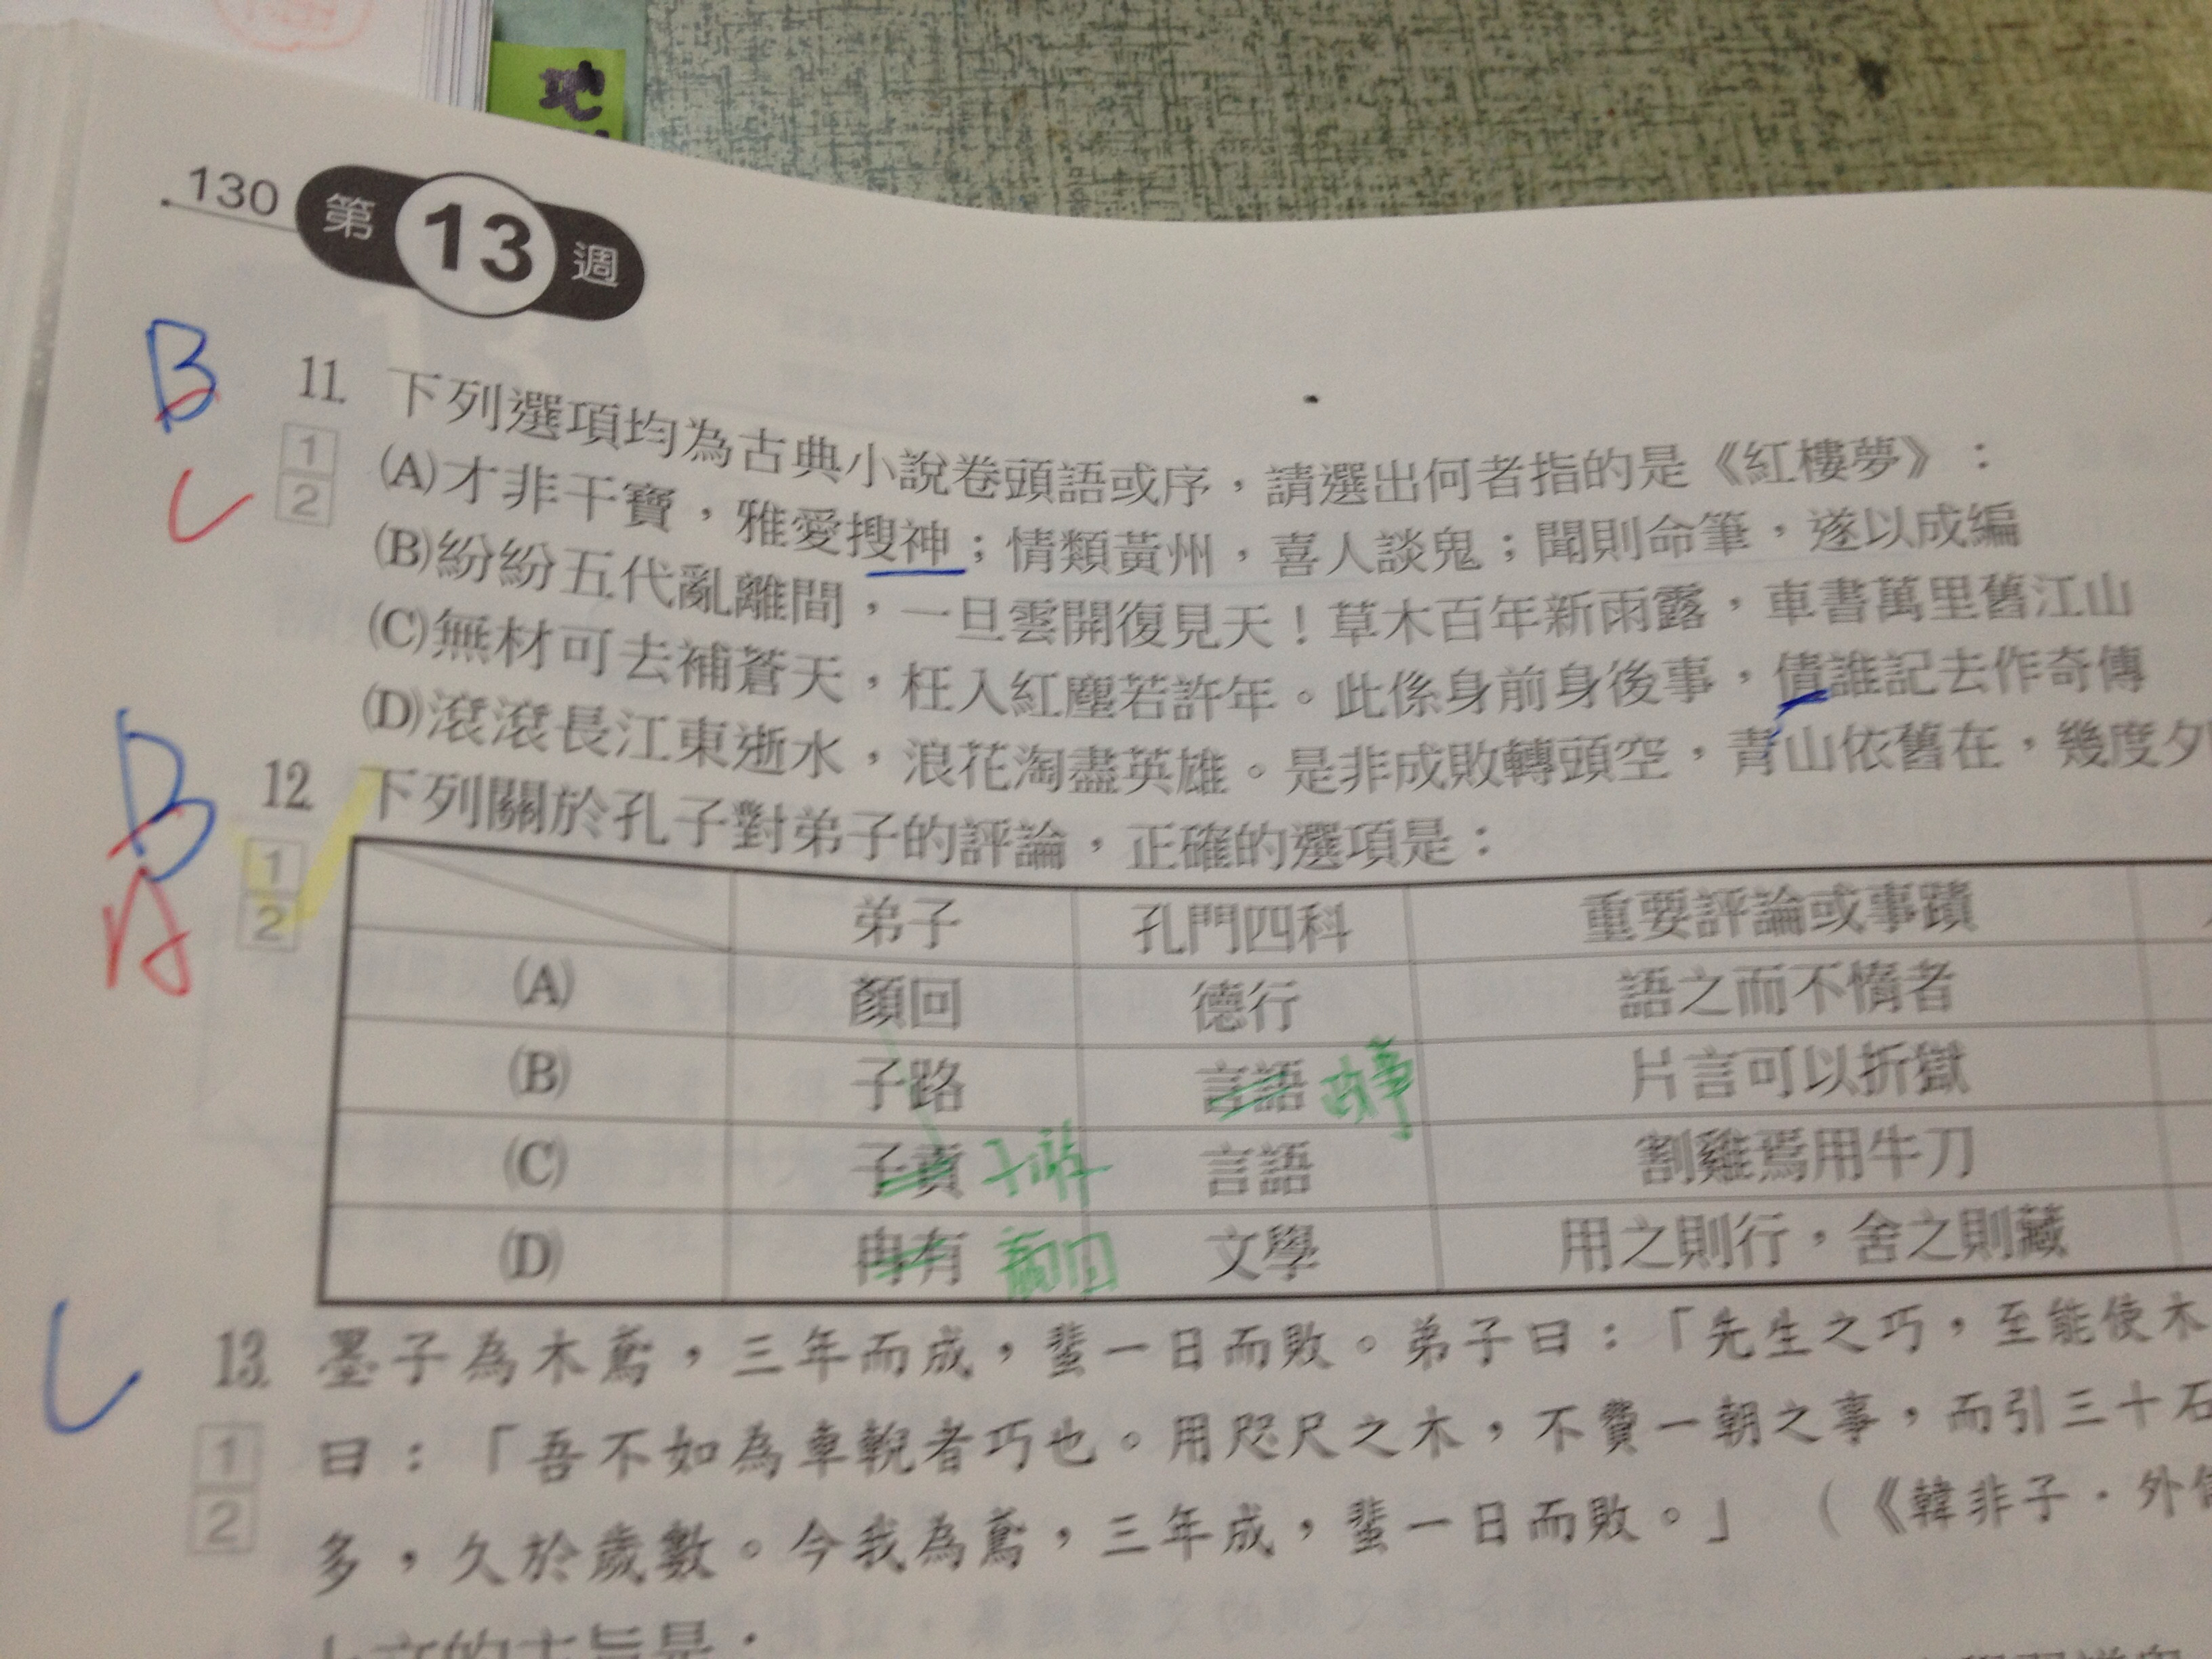 地
130 第13週
B
C
11. 下列選項均為古典小說卷頭語或序，請選出何者指的是《紅樓夢》：
1
2
(A)才非干寶，雅愛搜神；情類黃州，喜人談鬼；聞則命筆，遂以成編
(B)紛紛五代亂離間，一旦雲開復見天！草木百年新雨露，車書萬里舊江山
(C)無材可去補蒼天，枉入紅塵若許年。此係身前身後事，倩誰記去作奇傳
(D)滾滾長江東逝水，浪花淘盡英雄。是非成敗轉頭空，青山依舊在，幾度夕
B
A
12. 下列關於孔子對弟子的評論，正確的選項是：
1
2
弟子 孔門四科 重要評論或事蹟
(A) 顏回 德行 語之而不惰者
(B) 子路 言語 政事 片言可以折獄
(C) 子貢 子游 言語 割雞焉用牛刀
(D) 冉有 顏回 文學 用之則行，舍之則藏
C
13. 墨子為木鳶，三年而成，蜚一日而敗。弟子曰：「先生之巧，至能使木
1
2
曰：「吾不如為車輗者巧也。用咫尺之木，不費一朝之事，而引三十石
多，久於歲數。今我為鳶，三年成，蜚一日而敗。」（《韓非子．外
上文的主旨是：